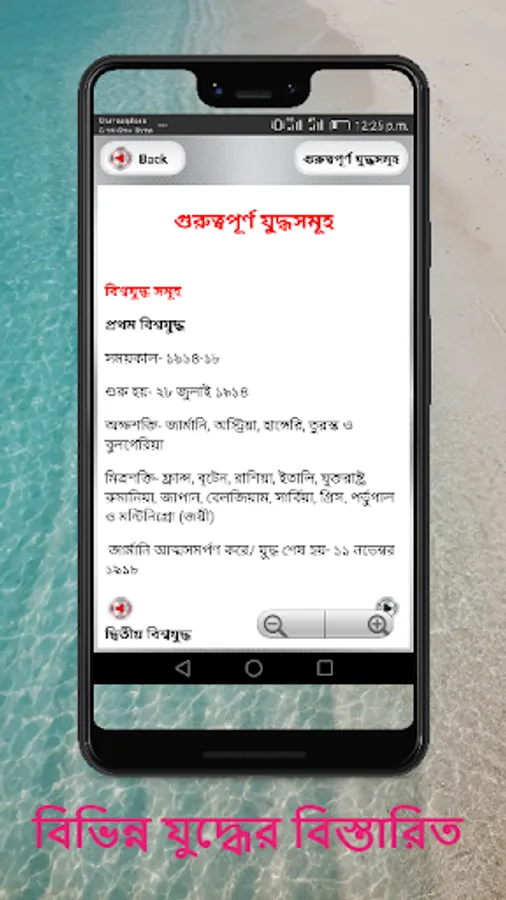 12:25 p.m.
Back
গুরুত্বপূর্ণ যুদ্ধসমূহ
গুরুত্বপূর্ণ যুদ্ধসমূহ
বিশ্বযুদ্ধ সমূহ
প্রথম বিশ্বযুদ্ধ
সময়কাল- ১৯১৪-১৮
শুরু হয়- ২৮ জুলাই ১৯১৪
অক্ষশক্তি- জার্মানি, অস্ট্রিয়া, হাঙ্গেরি, তুরস্ক ও
বুলগেরিয়া
মিত্রশক্তি- ফ্রান্স, বৃটেন, রাশিয়া, ইতালি, যুক্তরাষ্ট্র,
রুমানিয়া, জাপান, বেলজিয়াম, সার্বিয়া, গ্রিস, পর্তুগাল
ও মন্টিনিগ্রো (জয়ী)
জার্মানি আত্মসমর্পণ করে/ যুদ্ধ শেষ হয়- ১১ নভেম্বর
১৯১৮
দ্বিতীয় বিশ্বযুদ্ধ
বিভিন্ন যুদ্ধের বিস্তারিত